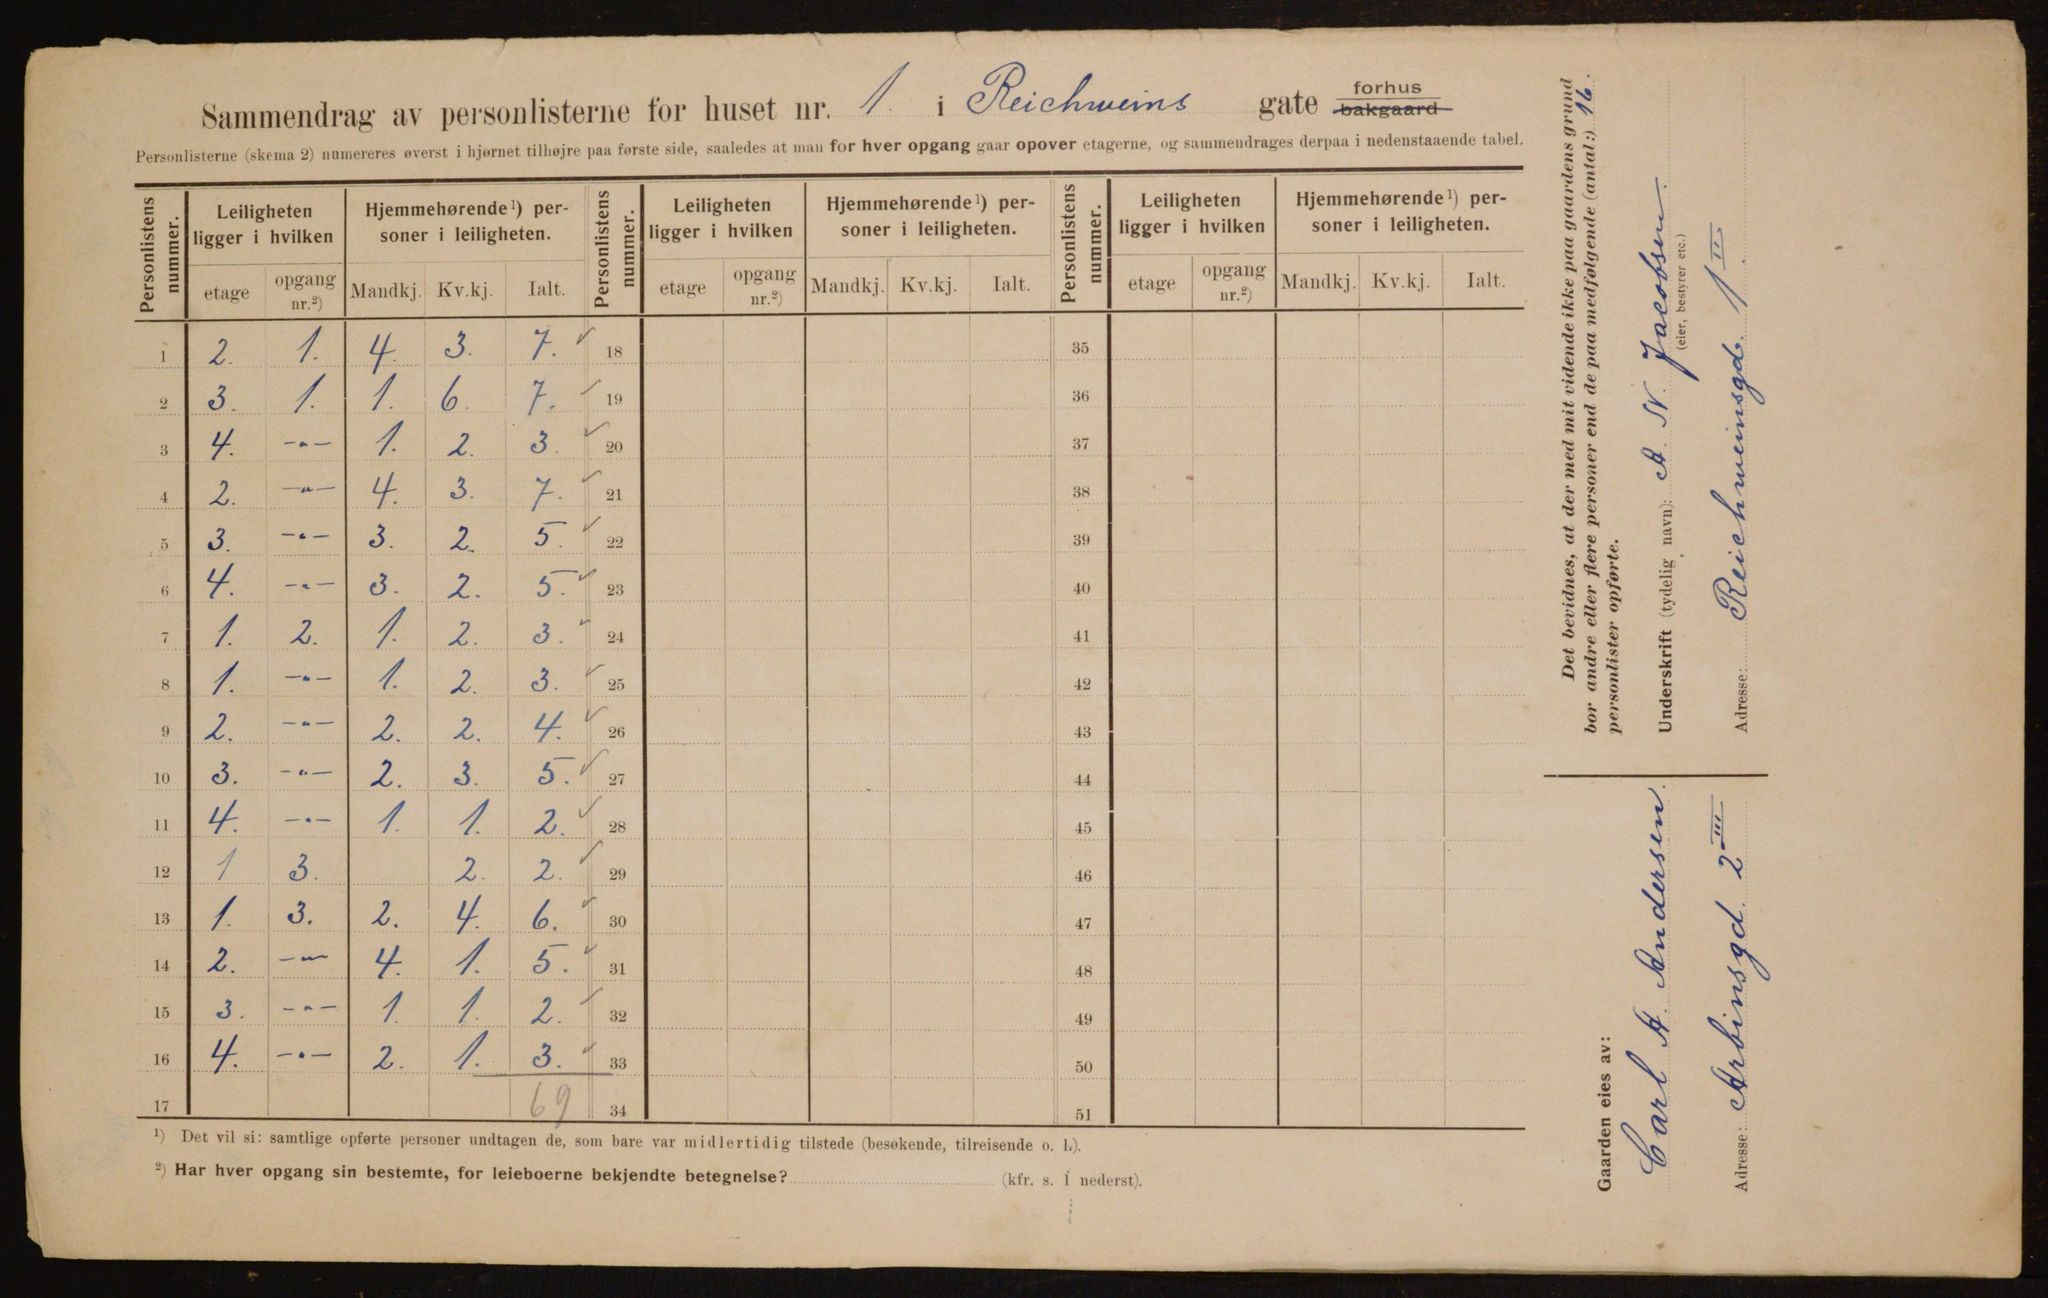 Sammendrag av personlisterne for huset nr. 1. i Reichweins gate forhus bakgaard
Personlisterne (skema 2) numereres øverst i hjørnet tilhøjre paa første side, saaledes at man for hver opgang gaar opover etagerne, og sammendrages derpaa i nedenstaaende tabel.
Personlistens nummer. Leiligheten ligger i hvilken Hjemmehørende ¹) personer i leiligheten. Personlistens nummer. Leiligheten ligger i hvilken Hjemmehørende ¹) personer i leiligheten. Personlistens nummer. Leiligheten ligger i hvilken Hjemmehørende ¹) personer i leiligheten.
etage opgang nr.²) Mandkj. Kv.kj. Ialt. etage opgang nr.²) Mandkj. Kv.kj. Ialt. etage opgang nr.²) Mandkj. Kv.kj. Ialt.
1 2. 1. 4. 3. 7. 18 35
2 3. 1. 1. 6. 7. 19 36
3 4. -"- 1. 2. 3. 20 37
4 2. -"- 4. 3. 7. 21 38
5 3. -"- 3. 2. 5. 22 39
6 4. -"- 3. 2. 5. 23 40
7 1. 2. 1. 2. 3. 24 41
8 1. -"- 1. 2. 3. 25 42
9 2. -"- 2. 2. 4. 26 43
10 3. -"- 2. 3. 5. 27 44
11 4. -"- 1. 1. 2. 28 45
12 1 3. 2. 2. 29 46
13 1. 3. 2. 4. 6. 30 47
14 2. -"- 4. 1. 5. 31 48
15 3. -"- 1. 1. 2. 32 49
16 4. -"- 2. 1. 3. 33 50
17 69 34 51
¹) Det vil si: samtlige opførte personer undtagen de, som bare var midlertidig tilstede (besøkende, tilreisende o. l.).
²) Har hver opgang sin bestemte, for leieboerne bekjendte betegnelse? (kfr. s. 1 nederst).
Det bevidnes, at der med mit vidende ikke paa gaardens grund
bor andre eller flere personer end de paa medfølgende (antal:) 16.
personlister opførte.
Underskrift (tydelig navn): A. N. Jacobsen.
(eier, bestyrer etc.)
Adresse: Reichweinsgd. 1 III
Gaarden eies av:
Carl A. Andersen.
Adresse: Arbinsgd. 2 III